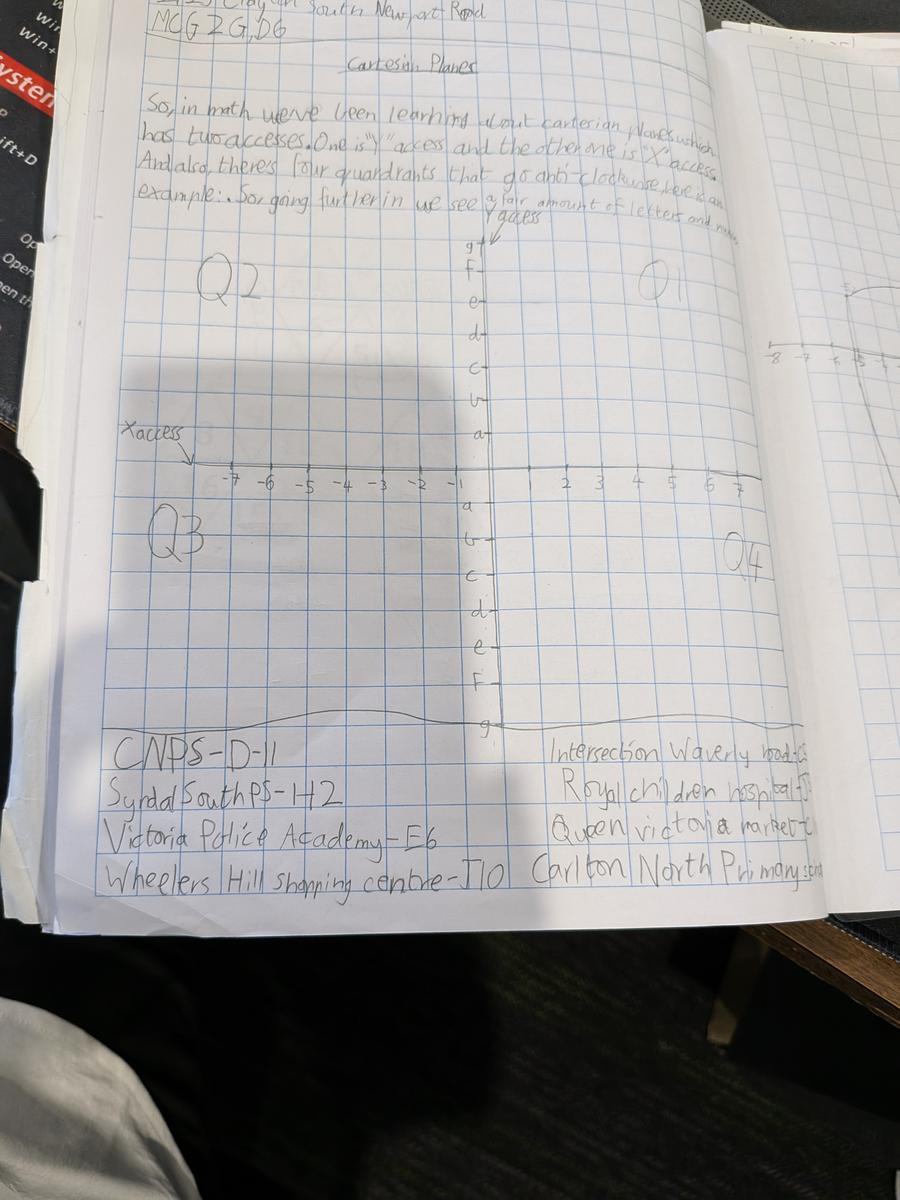 South Newport Road
MCG 2G, D6
Cartesian Planes
So, in math we've been learning about carterian planes which
has two accesses. One is "Y" access and the other one is "X" access.
And also, there's four quardrants that go anti-clockwise, here is an
example:. So, going further in we see a fair amount of letters and
Y access
g
F
e
d
c
b
a
Q2
Q1
X access
-7 -6 -5 -4 -3 -2 -1 2 3 4 5 6 7
Q3
Q4
a
b
c
d
e
F
g
CNPS-D-11
Syndal South PS-H2
Victoria Police Academy-E6
Wheelers Hill shopping centre-J10
Intersection Waverly road
Royal children hospital
Queen victoria market
Carlton North Primary
-8 -7